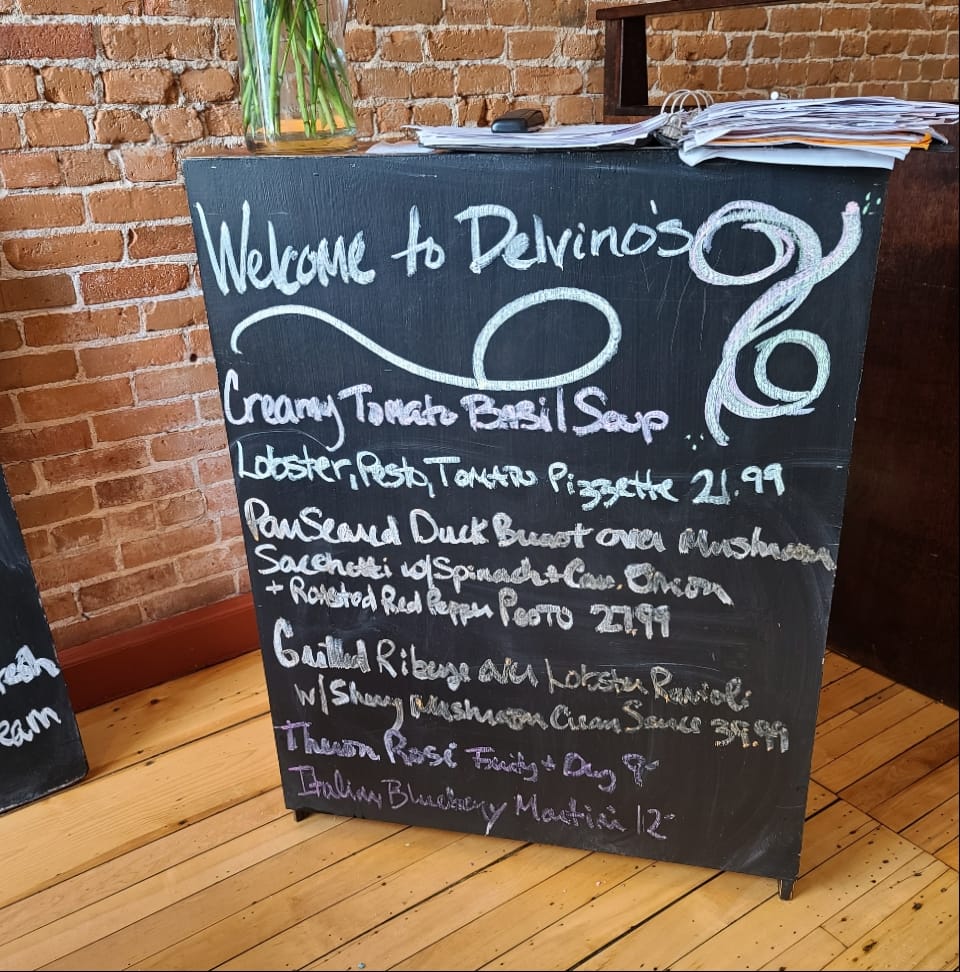 Welcome to Delvino's
Creamy Tomato Basil Soup
Lobster, Pesto, Tomato Pizzette 21.99
Pan Seared Duck Breast over Mushroom
Sacchetti w/ Spinach + Car. Onion
+ Roasted Red Pepper Pesto 27.99
Grilled Ribeye over Lobster Ravioli
w/ Sherry Mushroom Cream Sauce 39.99
Rosé Fruity + Dry 9-
Italian Blueberry Martini 12-
resh
eam